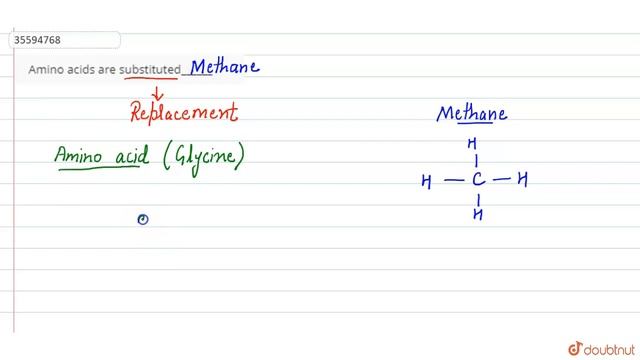 35594768
Amino acids are substituted Methane
Replacement
Amino acid (Glycine)
Methane
H
H — C — H
H
doubtnut